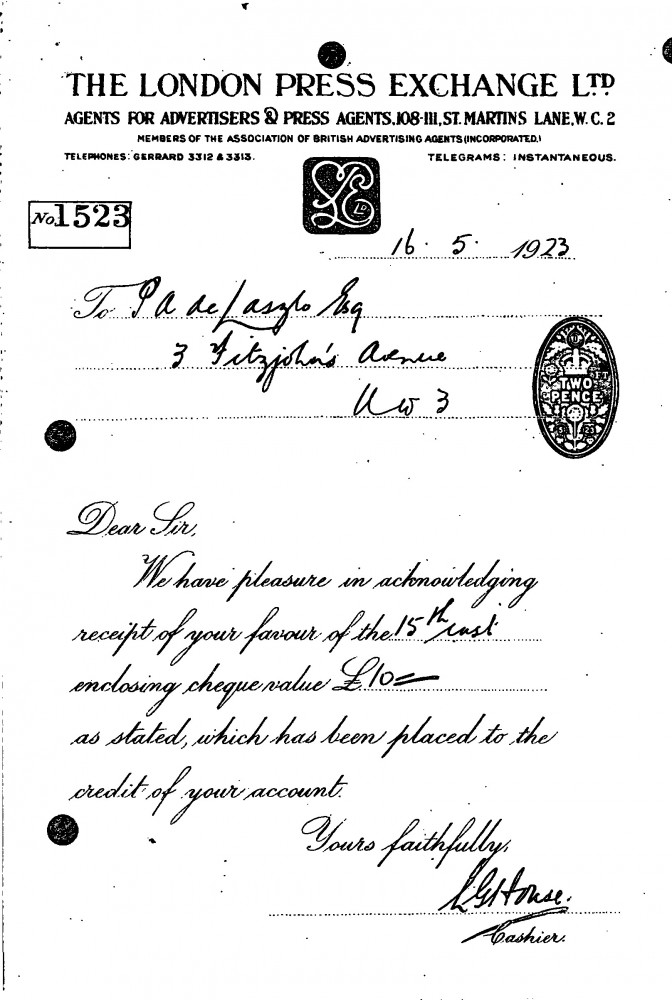 THE LONDON PRESS EXCHANGE LTD
AGENTS FOR ADVERTISERS & PRESS AGENTS, 108-111, ST. MARTINS LANE, W. C. 2
MEMBERS OF THE ASSOCIATION OF BRITISH ADVERTISING AGENTS (INCORPORATED.)
TELEPHONES: GERRARD 3312 & 3313.
TELEGRAMS: INSTANTANEOUS.
LPE LD
No. 1523
16. 5. 1923
To P A de Laszlo Esq
3 Fitzjohn's Avenue
NW 3
TWO
PENCE
Dear Sir,
We have pleasure in acknowledging
receipt of your favour of the 15th inst
enclosing cheque value £10=
as stated, which has been placed to the
credit of your account.
Yours faithfully,
LG House.
Cashier.